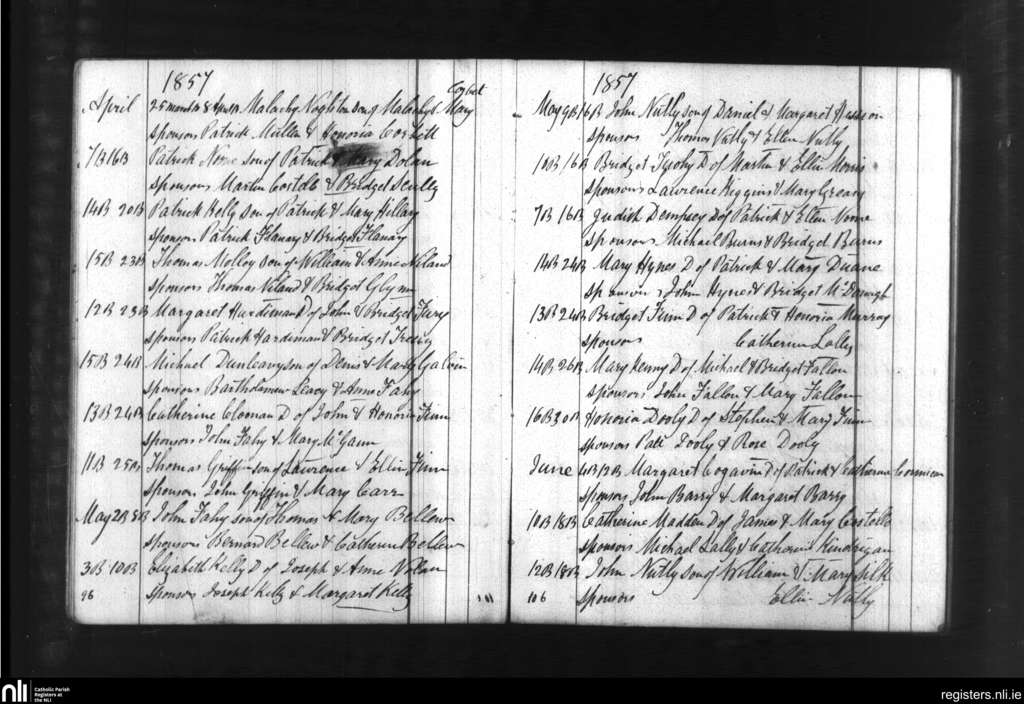 1857
April 25 month 8 April Malachy Noghton son of Malachy & Mary Corbet
Sponsors Patrick Mullen & Honoria Corbett
7B 16B Patrick None son of Patrick & Mary Dolan
Sponsors Martin Costello & Bridget Scully
14B 20B Patrick Kelly son of Patrick & Mary Hillary
Sponsors Patrick Flanary & Bridget Flanary
15B 23B Thomas Molloy son of William & Anne Niland
Sponsors Thomas Niland & Bridget Glynn
12B 23B Margaret Hardiman D of John & Bridget Furey
Sponsors Patrick Hardiman & Bridget
15B 24B Michael Dunleavy son of Denis & Mary Galvin
Sponsors Bartholomew Leacy & Anne Fahy
13B 24B Catherine Cloonan D of John & Honoria Finn
Sponsors John Fahy & Mary McGann
11B 25B Thomas Griffin son of Lawrence & Ellin Finn
Sponsors John Griffin & Mary Carr
May 2B 3B John Fahy son of Thomas & Mary Bellew
Sponsors Bernard Bellew & Catherine Bellew
3B 10B Elizabeth Kelly D of Joseph & Anne Nolan
96 Sponsors Joseph Kelly & Margaret Kelly
1857
May 9B 16B John Nutly son of Daniel & Margaret
Sponsors Thomas Nutly & Ellen Nutly
10B 16B Bridget D of Martin & Ellen Morris
Sponsors Lawrence Higgins & Mary Greary
7B 16B Judish Dempsey D of Patrick & Ellen None
Sponsors Michael Burns & Bridget Burns
14B 24B Mary Hynes D of Patrick & Mary Duane
Sponsors John Hynes & Bridget McDonogh
13B 24B Bridget Finn D of Patrick & Honoria Murray
Sponsors Catherine Lally
14B 26B Mary Kenny D of Michael & Bridget Fallon
Sponsors John Fallon & Mary Fallon
16B 30B Honoria Dooly D of Stephen & Mary Finn
Sponsors Patt Dooly & Rose Dooly
June 4B 13B Margaret Cogavin D of Patrick & Catherine
Sponsors John Barry & Margaret Barry
10B 18B Catherine Madden D of James & Mary Costello
Sponsors Michael Lally & Catherine
12B 18B John Nutly son of William & Mary Silk
106 Sponsors Ellin Nutly
nli Catholic Parish
Registers at
the NLI
registers.nli.ie